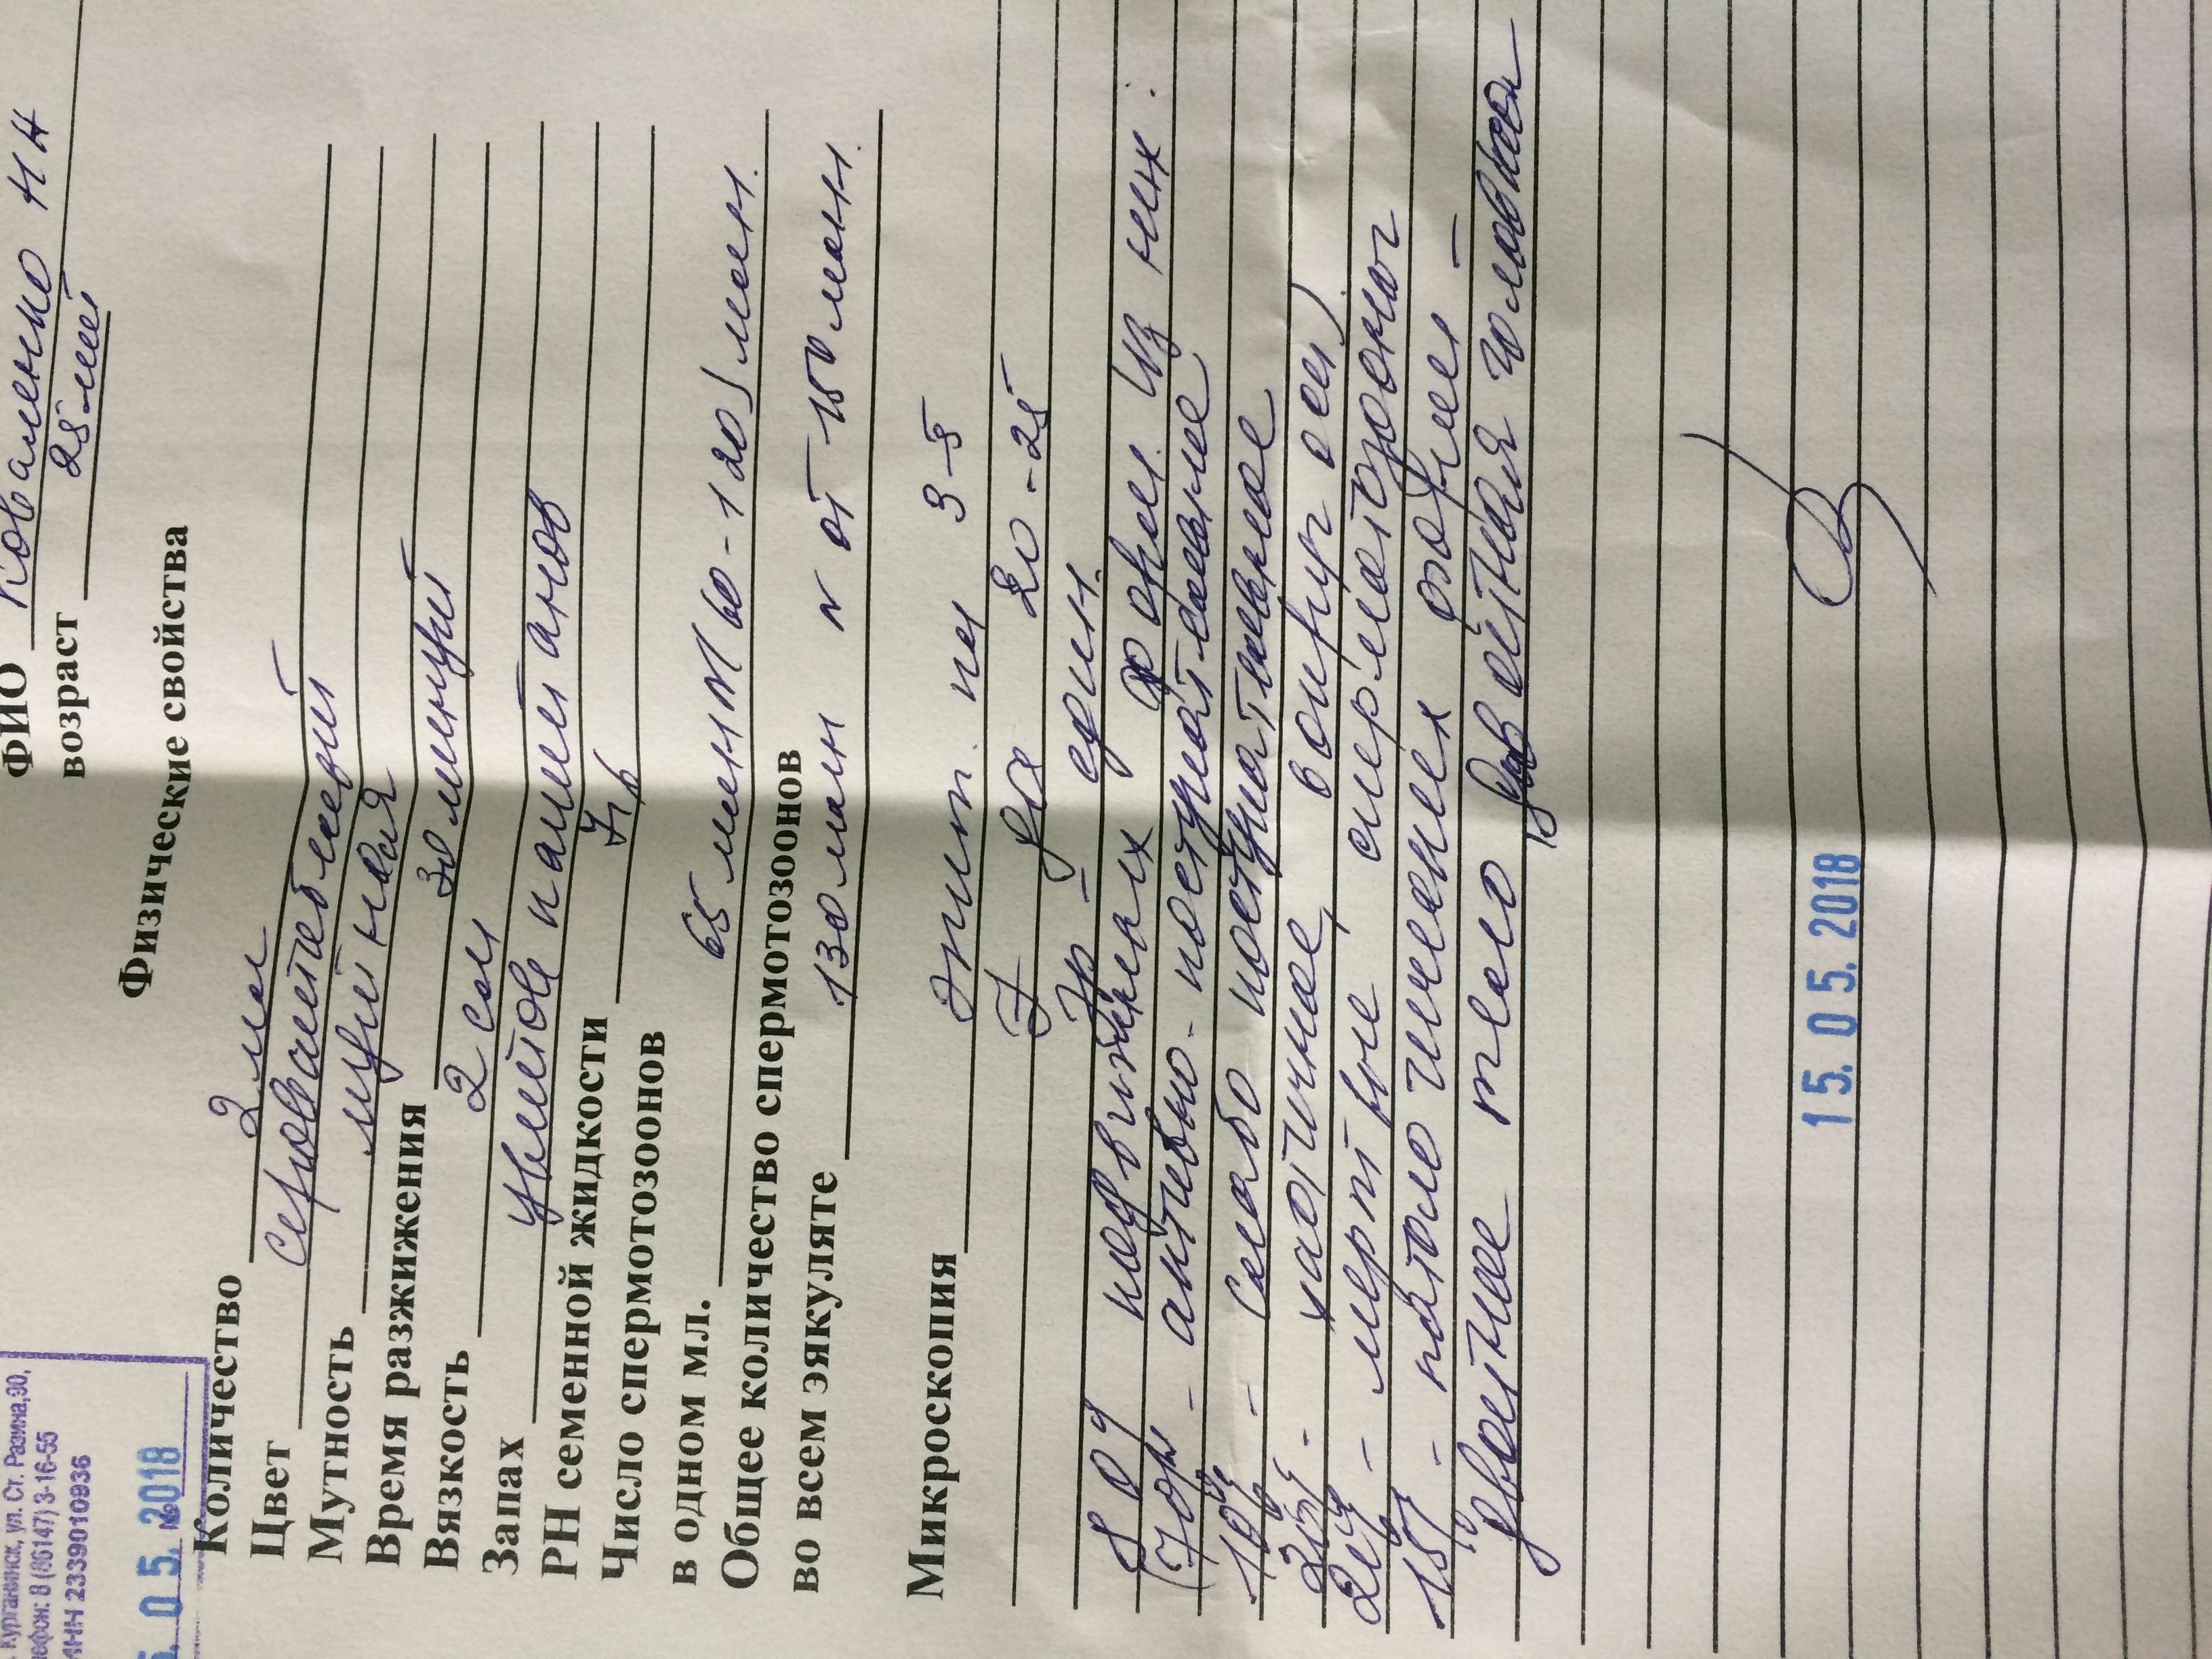 Курганинск, ул. Ст. Разина, 90,
телефон: 8 (86147) 3-16-55
ИНН 2339010936
5. 05. 2018
№
ФИО Коваленко НН
возраст 28 лет
Физические свойства
Количество 2 мл
Цвет серовато белый
Мутность мутная
Время разжижения 30 минут
Вязкость 2 см
Запах цветов каштанов
PH семенной жидкости 7,6
Число спермотозоонов
в одном мл. 65 млн N 60-120 млн.
Общее количество спермотозоонов
во всем эякуляте 130 млн N от 180 млн.
Микроскопия эпит. пл 3-5
L 20-25
Эр - един.
80% подвижных форм. Из них:
(70% - активно-поступательное
10% - слабо поступательное
хаотичное, вокруг оси)
20% - мертвые сперматозооны
15% - патологических форм -
двойное тело, двойная головка
15. 05. 2018